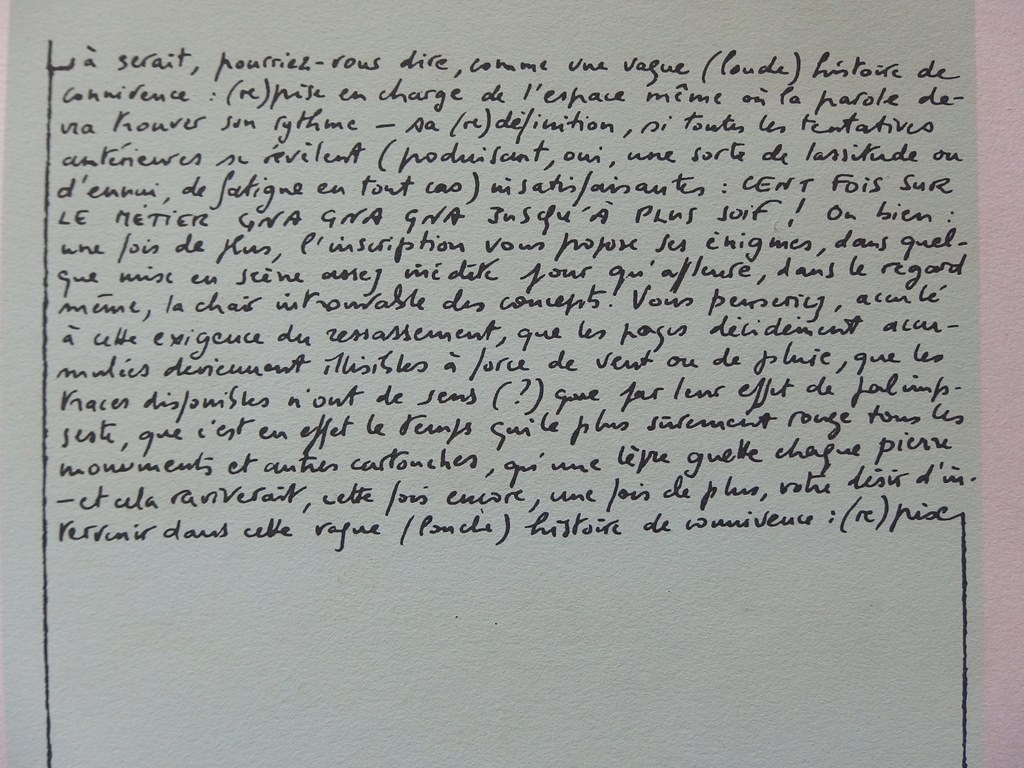 Là serait, pourriez-vous dire, comme une vague (louche) histoire de
connivence : (re)prise en charge de l'espace même où la parole de-
vra trouver son rythme — sa (re)définition, si toutes les tentatives
antérieures se révèlent (produisant, oui, une sorte de lassitude ou
d'ennui, de fatigue en tout cas) insatisfaisantes : CENT FOIS SUR
LE MÉTIER GNA GNA GNA JUSQU'À PLUS SOIF ! Ou bien :
une fois de plus, l'inscription vous propose ses énigmes, dans quel-
que mise en scène assez inédite pour qu'affleure, dans le regard
même, la chair introuvable des concepts. Vous penseriez, acculé
à cette exigence du ressassement, que les pages décidément accu-
mulées deviennent illisibles à force de vent ou de pluie, que les
traces disponibles n'ont de sens (?) que par leur effet de palimp-
seste, que c'est en effet le temps qui le plus sûrement ronge tous les
monuments et autres cartouches, qu'une lèpre guette chaque pierre
— et cela raviverait, cette fois encore, une fois de plus, votre désir d'in-
tervenir dans cette vague (louche) histoire de connivence : (re)prise